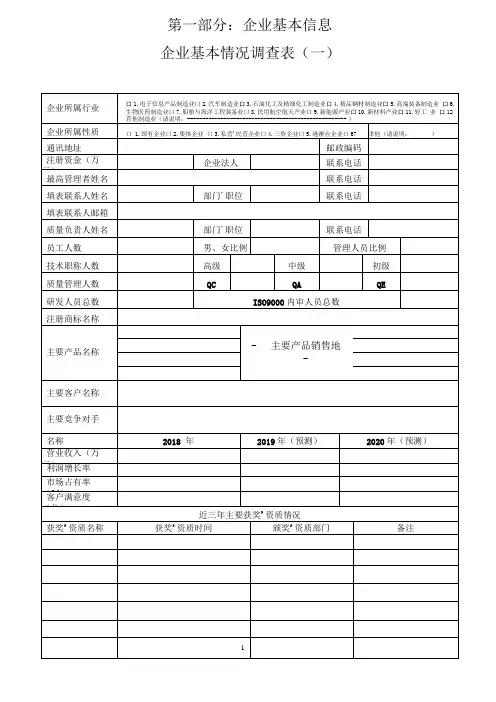 第一部分：企业基本信息
企业基本情况调查表（一）
企业所属行业 口1.电子信息产品制造业口2.汽车制造业口3.石油化工及精细化工制造业口4.精品钢材制造业口5.高端装备制造业 口6.
生物医药制造业口7.船舶与海洋工程装备业口8.民用航空航天产业口9.新能源产业口10.新材料产业口11.轻工 业 口12
其他制造业（请说明： ）
企业所属性质 口 1.国有企业口2.集体企业 口3.私营'民营企业口4.三资企业口5.港澳台企业口6? 其他（请说明： ）
通讯地址 邮政编码
注册资金（万 企业法人 联系电话
最高管理者姓名 联系电话
填表联系人姓名 部门'职位 联系电话
填表联系人邮箱
质量负责人姓名 部门'职位 联系电话
员工人数 男、女比例 管理人员比例
技术职称人数 高级 中级 初级
质量管理人数 QC QA QE
研发人员总数 ISO9000内审人员总数
注册商标名称
主要产品名称 - 主要产品销售地
-
主要客户名称
主要竞争对手
名称 2018 年 2019年（预测） 2020年（预测）
营业收入（万
利润增长率
市场占有率
客户满意度
近三年主要获奖'资质情况
获奖'资质名称 获奖'资质时间 颁奖'资质部门 备注
1